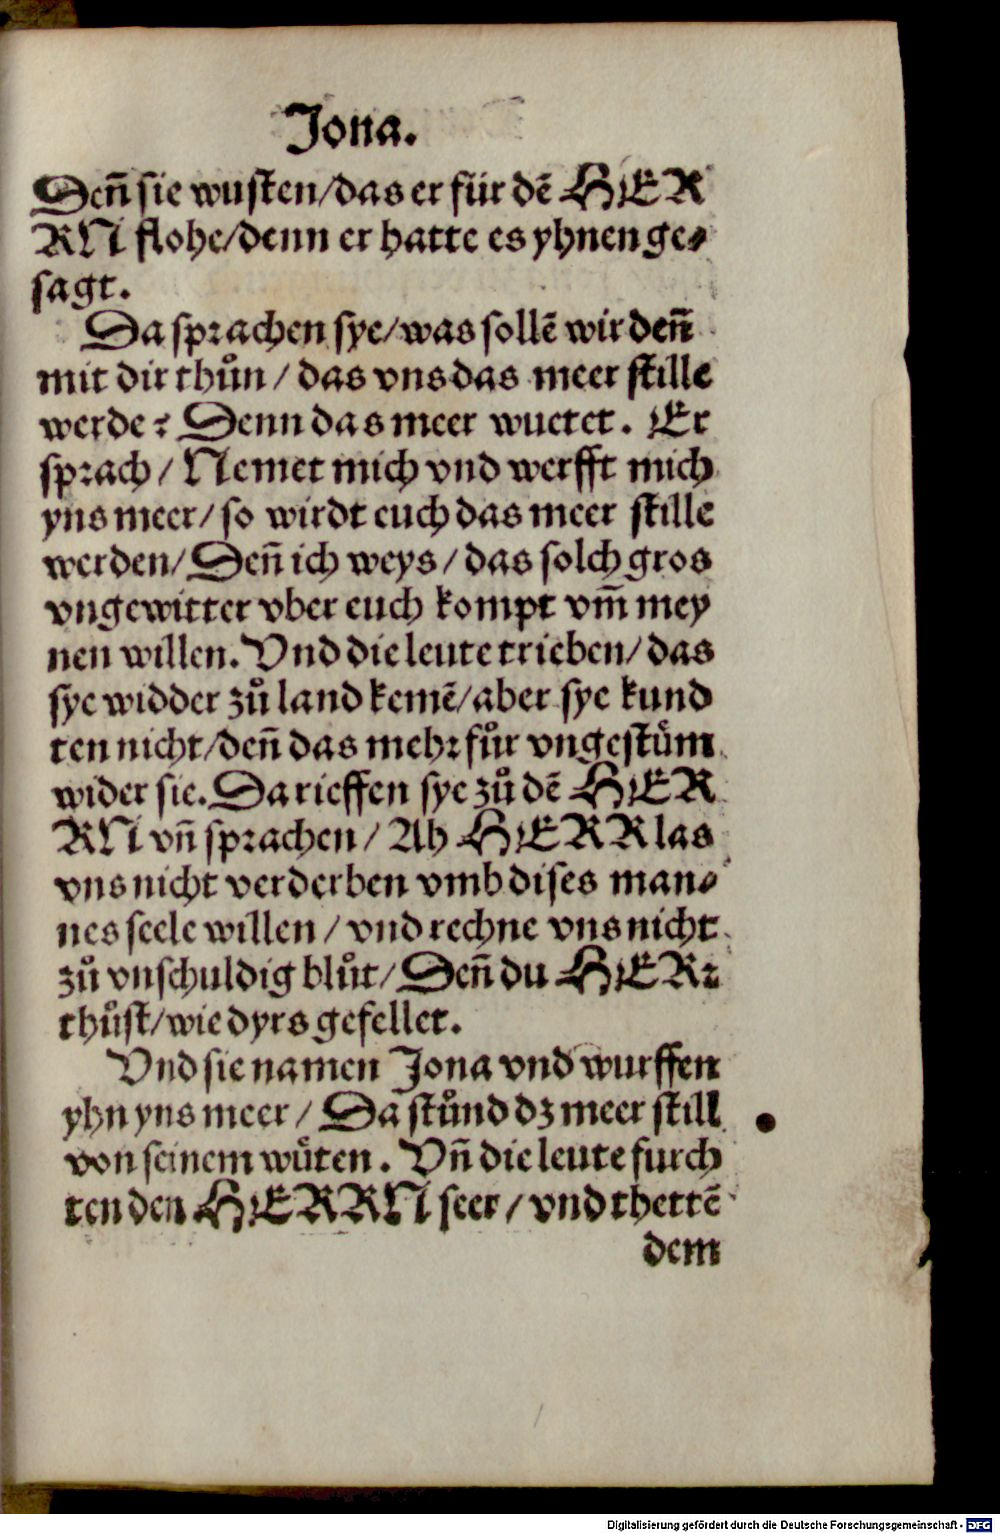 Jona.
Deñ sie wusten/das er für dē HER
RN flohe/denn er hatte es yhnen ge⸗
sagt.
Da sprachen sye/was sollē wir deñ
mit dir thůn / das vns das meer stille
werde? Denn das meer wuetet. Er
sprach / Nemet mich vnd werfft mich
yns meer/ so wirdt euch das meer stille
werden/ Deñ ich weys / das solch gros
vngewitter vber euch kompt vm̄ mey
nen willen. Vnd die leute trieben/ das
sye widder zů land kemē/aber sye kund
ten nicht/deñ das mehr fůr vngestům
wider sie. Da rieffen sye zů dē HER
RN vñ sprachen / Ah HERR las
vns nicht verderben vmb dises man⸗
nes seele willen / vnd rechne vns nicht
zů vnschuldig blůt/ Deñ du HERr
thůst/wie dyrs gefellet.
Vnd sie namen Jona vnd wurffen
yhn yns meer / Da stůnd dz meer still
von seinem wůten. Vñ die leute furch
ten den HERRN seer / vnd thettē
dem
Digitalisierung gefördert durch die Deutsche Forschungsgemeinschaft - DFG